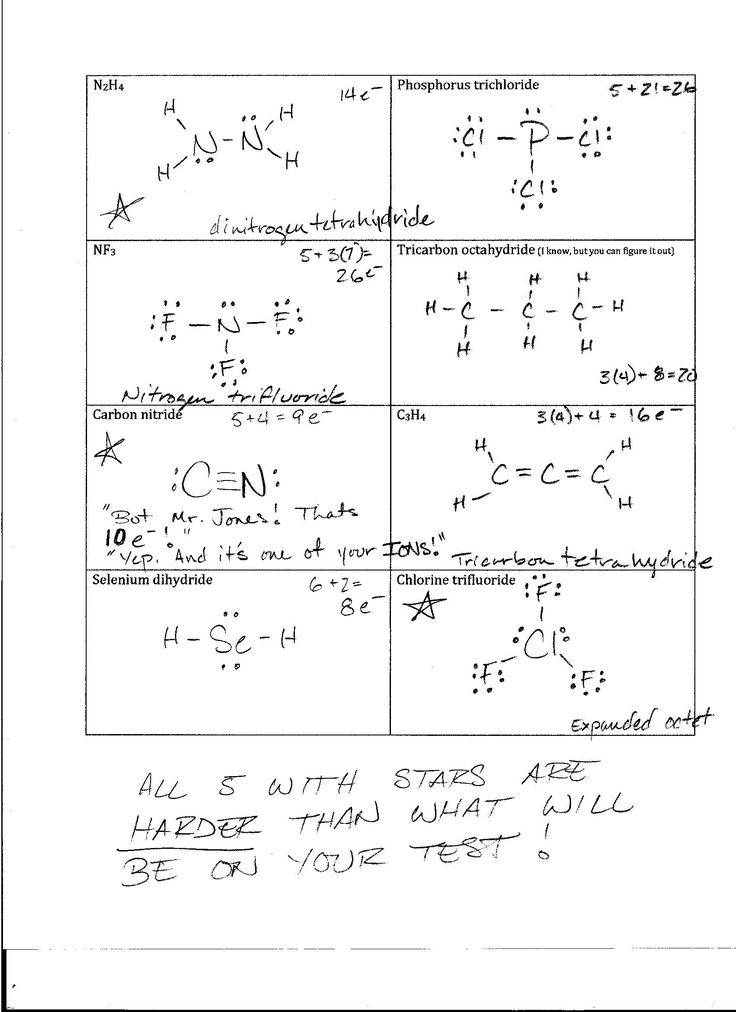 N₂H₄
14e⁻
H H
N - N
H H
dinitrogen tetrahydride
Phosphorus trichloride
5 + 21 = 26
:Cl - P - Cl:
:Cl:
NF₃
5 + 3(7)=
26e⁻
:F - N - F:
:F:
Nitrogen trifluoride
Tricarbon octahydride (I know, but you can figure it out)
H H H
H - C - C - C - H
H H H
3(4) + 8 = 20
Carbon nitride
5+4 = 9e⁻
:C≡N:
"But Mr. Jones! Thats
10e⁻!"
"Yep. And it's one of your IONS!"
C₃H₄
3(4) + 4 = 16e⁻
H H
C = C = C
H H
Tricarbon tetrahydride
Selenium dihydride
6 + 2 =
8e⁻
H - Se - H
Chlorine trifluoride
:F:
Cl
:F: :F:
Expanded octet
ALL 5 WITH STARS ARE
HARDER THAN WHAT WILL
BE ON YOUR TEST!